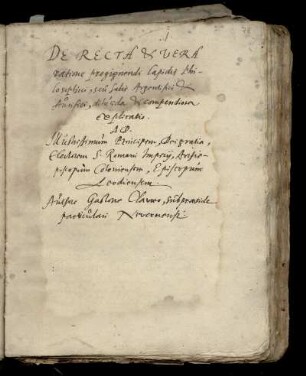 DE RECTA & VERA
ratione progignendi lapidis Phi-
losophici, seu salis Argentifici &
Aurifici, dilucida & compendiosa
explicatio.
AD
Illustrissimum Principem, Dei gratia,
Electorem S. Romani Imperij, Archie-
piscopum Coloniensem, Episcopum
Leodiensem
Authore Gastone Claveo, subpraeside
particulari Nivernensi